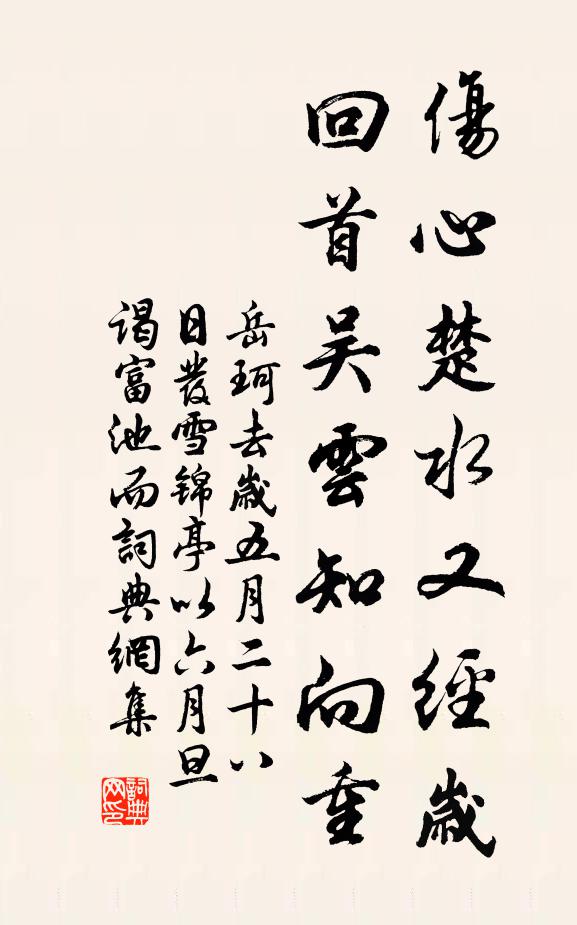 傷心楚水又經歲
回首吴雲知向重
岳珂去歲五月二十八
日發雪锦亭以六月旦
谒富池而詞典網集
詞典网印